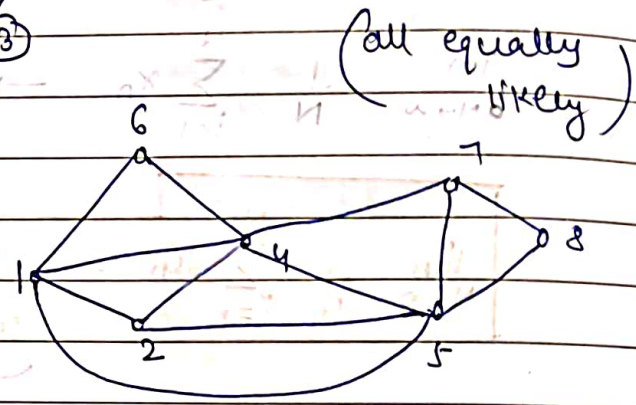 3
(all equally
likely)
6
7
8
4
1
2
5